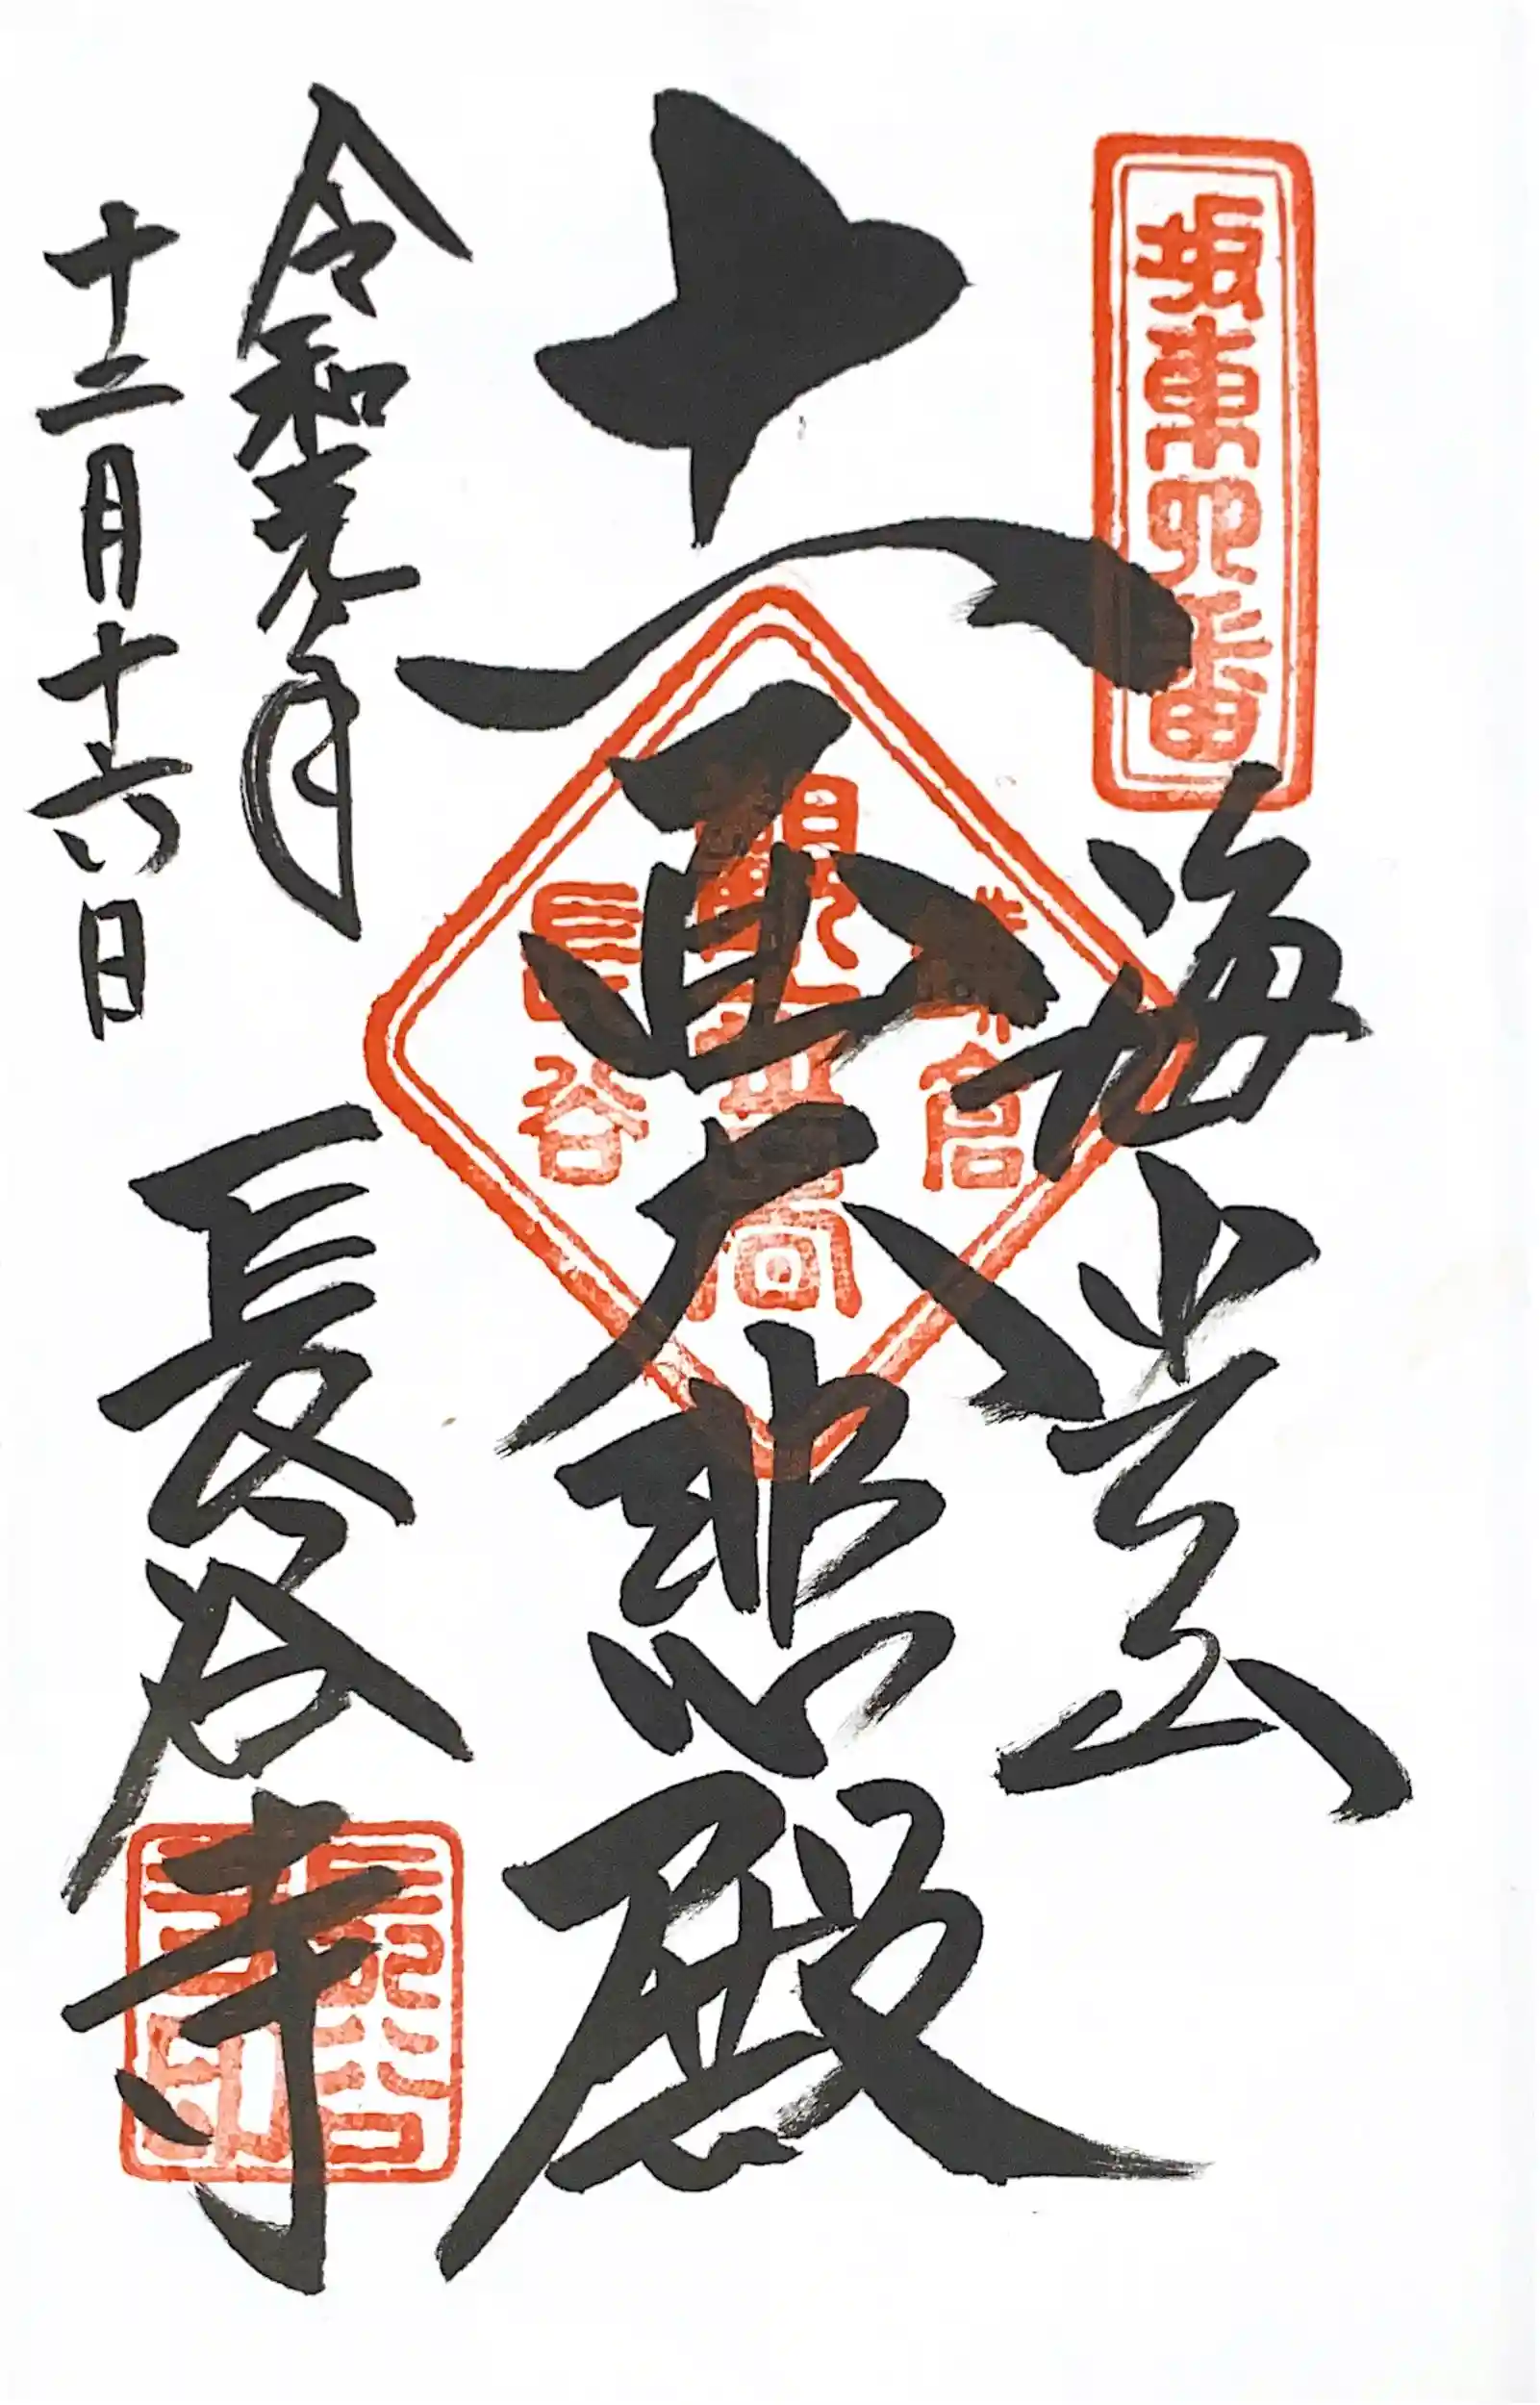 坂東四番
海光山
十一面大悲殿
観世音
鎌倉
長谷
令和元年
十二月十六日
長谷寺